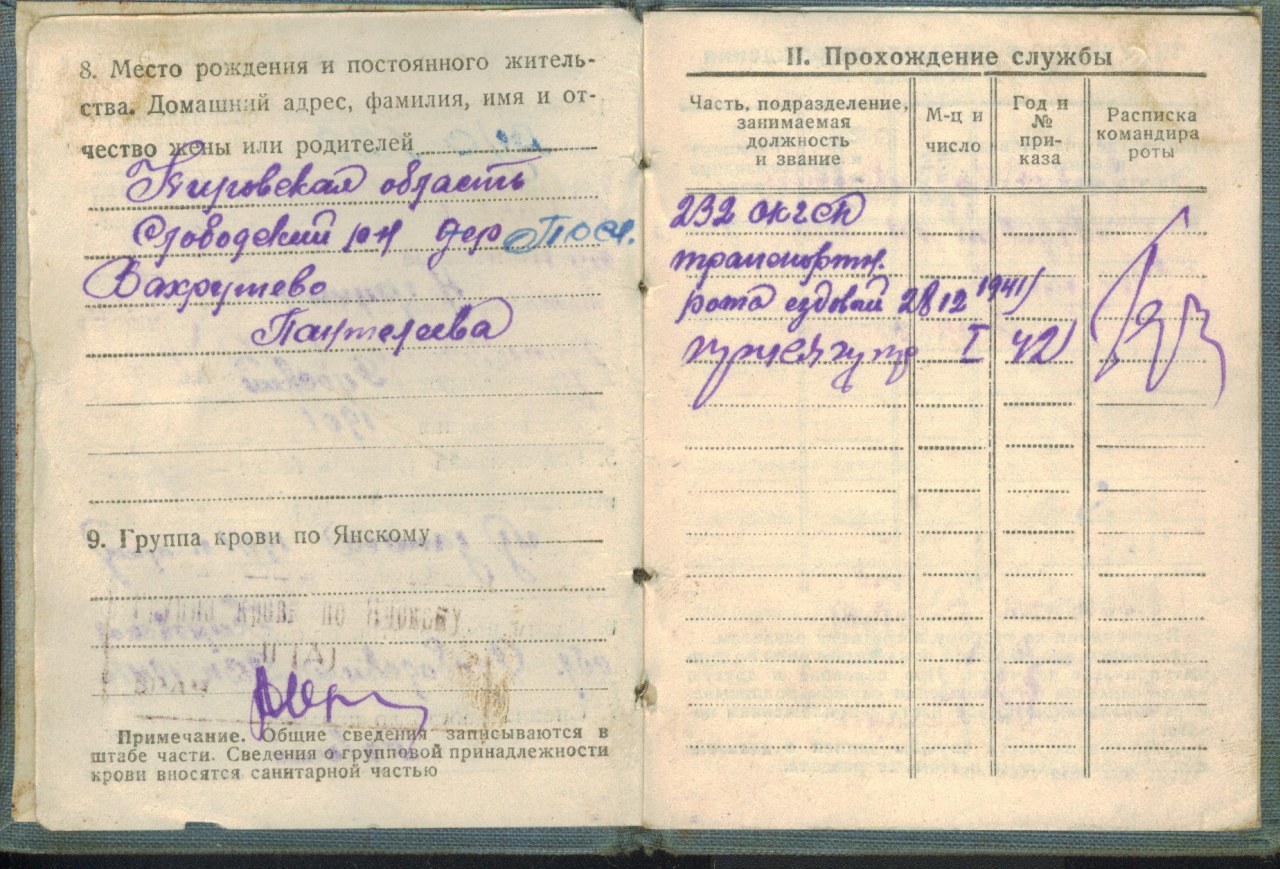 8. Место рождения и постоянного житель-
ства. Домашний адрес, фамилия, имя и от-
чество жены или родителей
Кировская область
Слободский р-н дер Пос.
Вахрушево
Пантелеева
9. Группа крови по Янскому
Группа крови по Янскому
II (А)
Примечание. Общие сведения записываются в
штабе части. Сведения о групповой принадлежности
крови вносятся санитарной частью
II. Прохождение службы
Часть, подразделение,
занимаемая
должность
и звание
М-ц и
число
Год и
№
при-
каза
Расписка
командира
роты
232
транспортн.
рота ездовой 28 12 1941
I 42